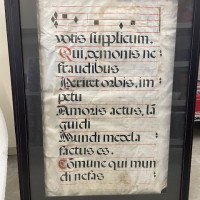 votis supplicum.
Qui, dæmonis ne
fraudibus
Periret orbis, im
petu
Amoris actus, lã
guidi
Mundi medela
factus es.
Cõmune qui mun
di nefas